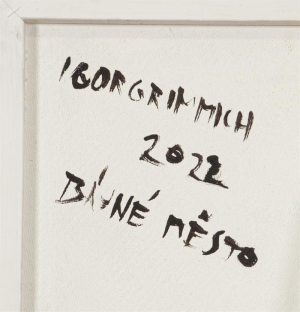 IGOR GRIMMICH
2022
BÁJNÉ MĚSTO